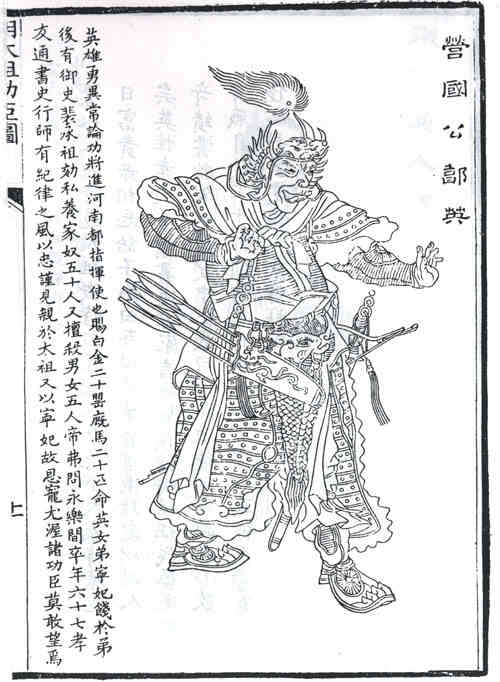 營國公郭英
英雄勇異常論功將進河南都指揮使也賜白金二十罌廄馬二十匹命英女弟寧妃餞於弟
後有御史裴承祖劾私養家奴五十人又擅殺男女五人帝弗問永樂間卒年六十七孝
友通書史行師有紀律之風以忠謹見親於太祖又以寧妃故恩寵尤渥諸功臣莫敢望焉
明太祖功臣圖
上